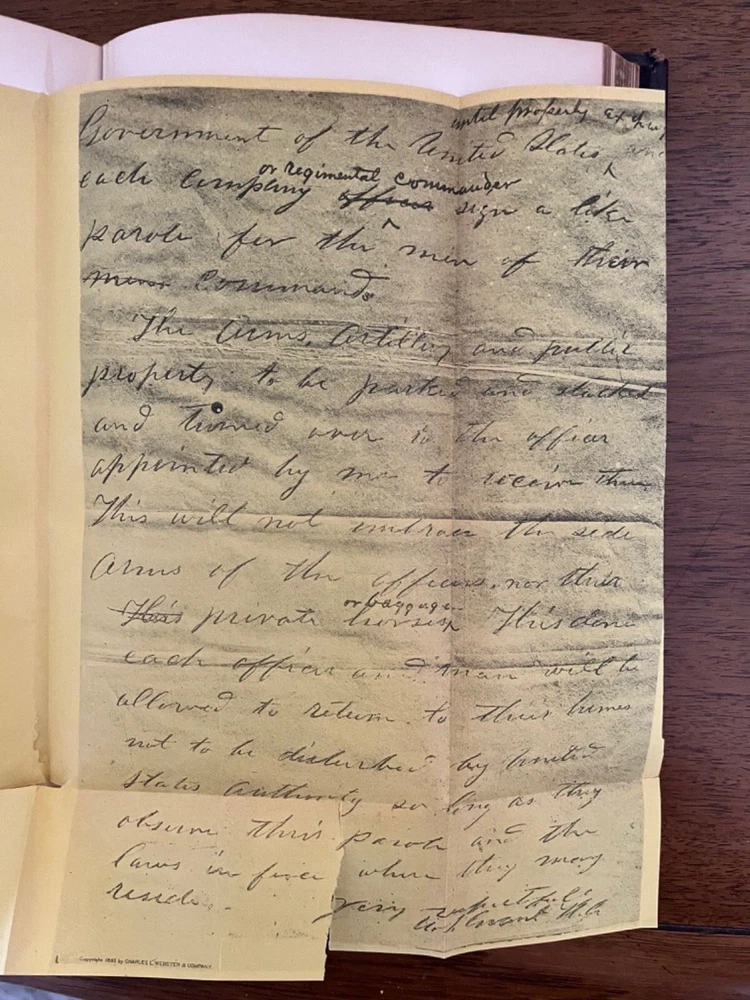 until properly
Government of the United States
or regimental commander
each company officer sign a like
parole for the men of their
commands
The Arms, Artillery and public
property to be parked and stacked
and turned over to the officer
appointed by me to receive them
This will not embrace the side
Arms of the officers, nor their
or baggage
This private horses This done
each officer and man will be
allowed to return to their homes
not to be disturbed by United
States Authority so long as they
observe their parole and the
laws in force where they may
reside.
Very respectfully
U.S. Grant
Copyright 1885 by CHARLES L. WEBSTER & COMPANY